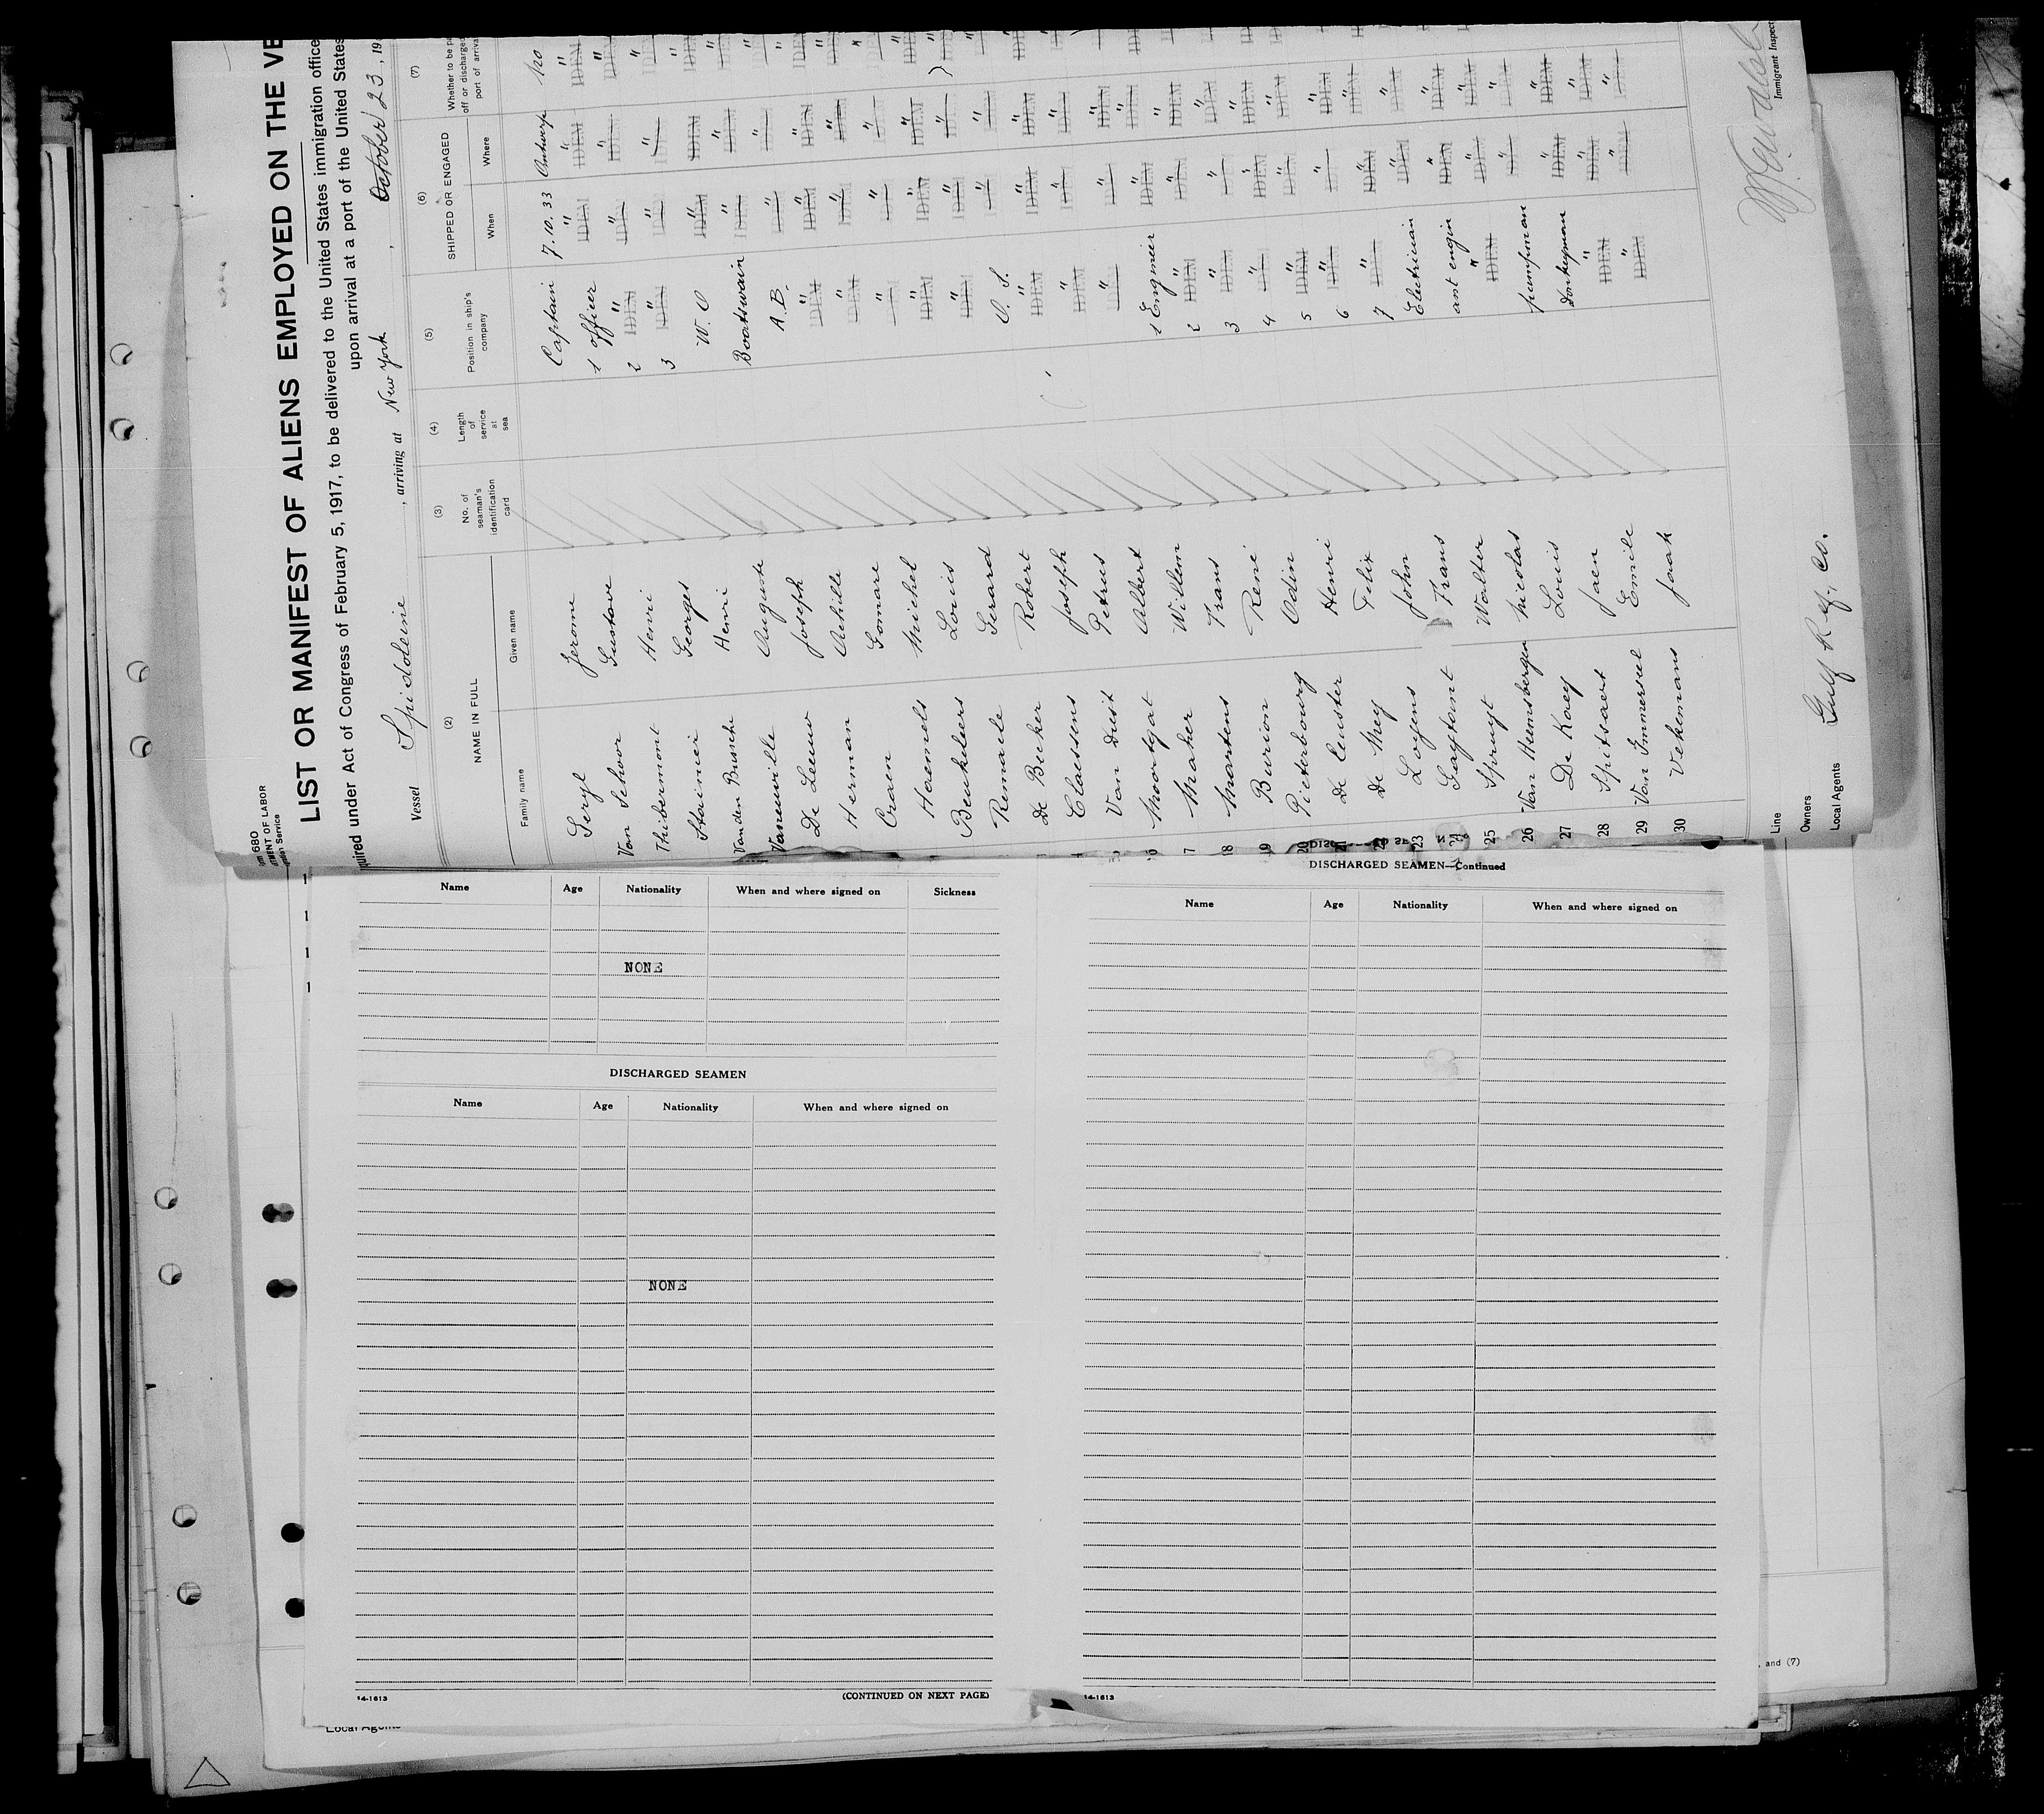 680
MENT OF LABOR
Service
LIST OR MANIFEST OF ALIENS EMPLOYED ON THE VE
quired under Act of Congress of February 5, 1917, to be delivered to the United States immigration office
upon arrival at a port of the United States
Vessel Spidoleine , arriving at New York , October 23, 19
(2) (3) (4) (5) (6) (7)
NAME IN FULL
Family name Given name
No. of seaman's identification card
Length of service at sea
Position in ship's company
SHIPPED OR ENGAGED
When Where
Whether to be pa
off or discharged
port of arriva
Seryl Jerome Captain 7.10.33 Antwerp No
Van Schoor Gustave 1 officer " " "
Thibermont Henri 2 " " " "
Stainier Georges 3 " " " "
Van den Bussche Henri W. O " " "
Vaneuville Auguste Boatswain " " "
De Leeuw Joseph A.B. " " "
Herman Achille " " " "
Craen Gomare " " " "
Heremels Michel " " " "
Beukeleers Louis " " " "
Remacle Gerard " " " "
De Becker Robert O. S. " " "
Claessens Joseph " " " "
Van Dust Petrus " " " "
6 Moortgat Albert " " " "
7 Maher Willem 1 Engineer " " "
18 Martens Frans 2 " " " "
19 Burion René 3 " " " "
20 Pieterbourg Odin 4 " " " "
21 De Ceuster Henri 5 " " " "
22 De Mey Felix 6 " " " "
23 Loyens John 7 " " " "
24 Gaytant Frans Electrician " " "
25 Spruyt Walter ant engin " " "
26 Van Heemsbergen Nicolas " " " "
27 De Koey Louis pumpman " " "
28 Spitsaert Jaen Donkeyman " " "
29 Van Immerseel Emile " " " "
30 Vekemans Jaak " " " "
Line
Owners
Local Agents Gulf Ref. Co.
Immigrant Inspec
Name Age Nationality When and where signed on Sickness
NONE
DISCHARGED SEAMEN
Name Age Nationality When and where signed on
NONE
14-1613
(CONTINUED ON NEXT PAGE)
DISCHARGED SEAMEN—Continued
Name Age Nationality When and where signed on
14-1613
and (7)
Local Agents